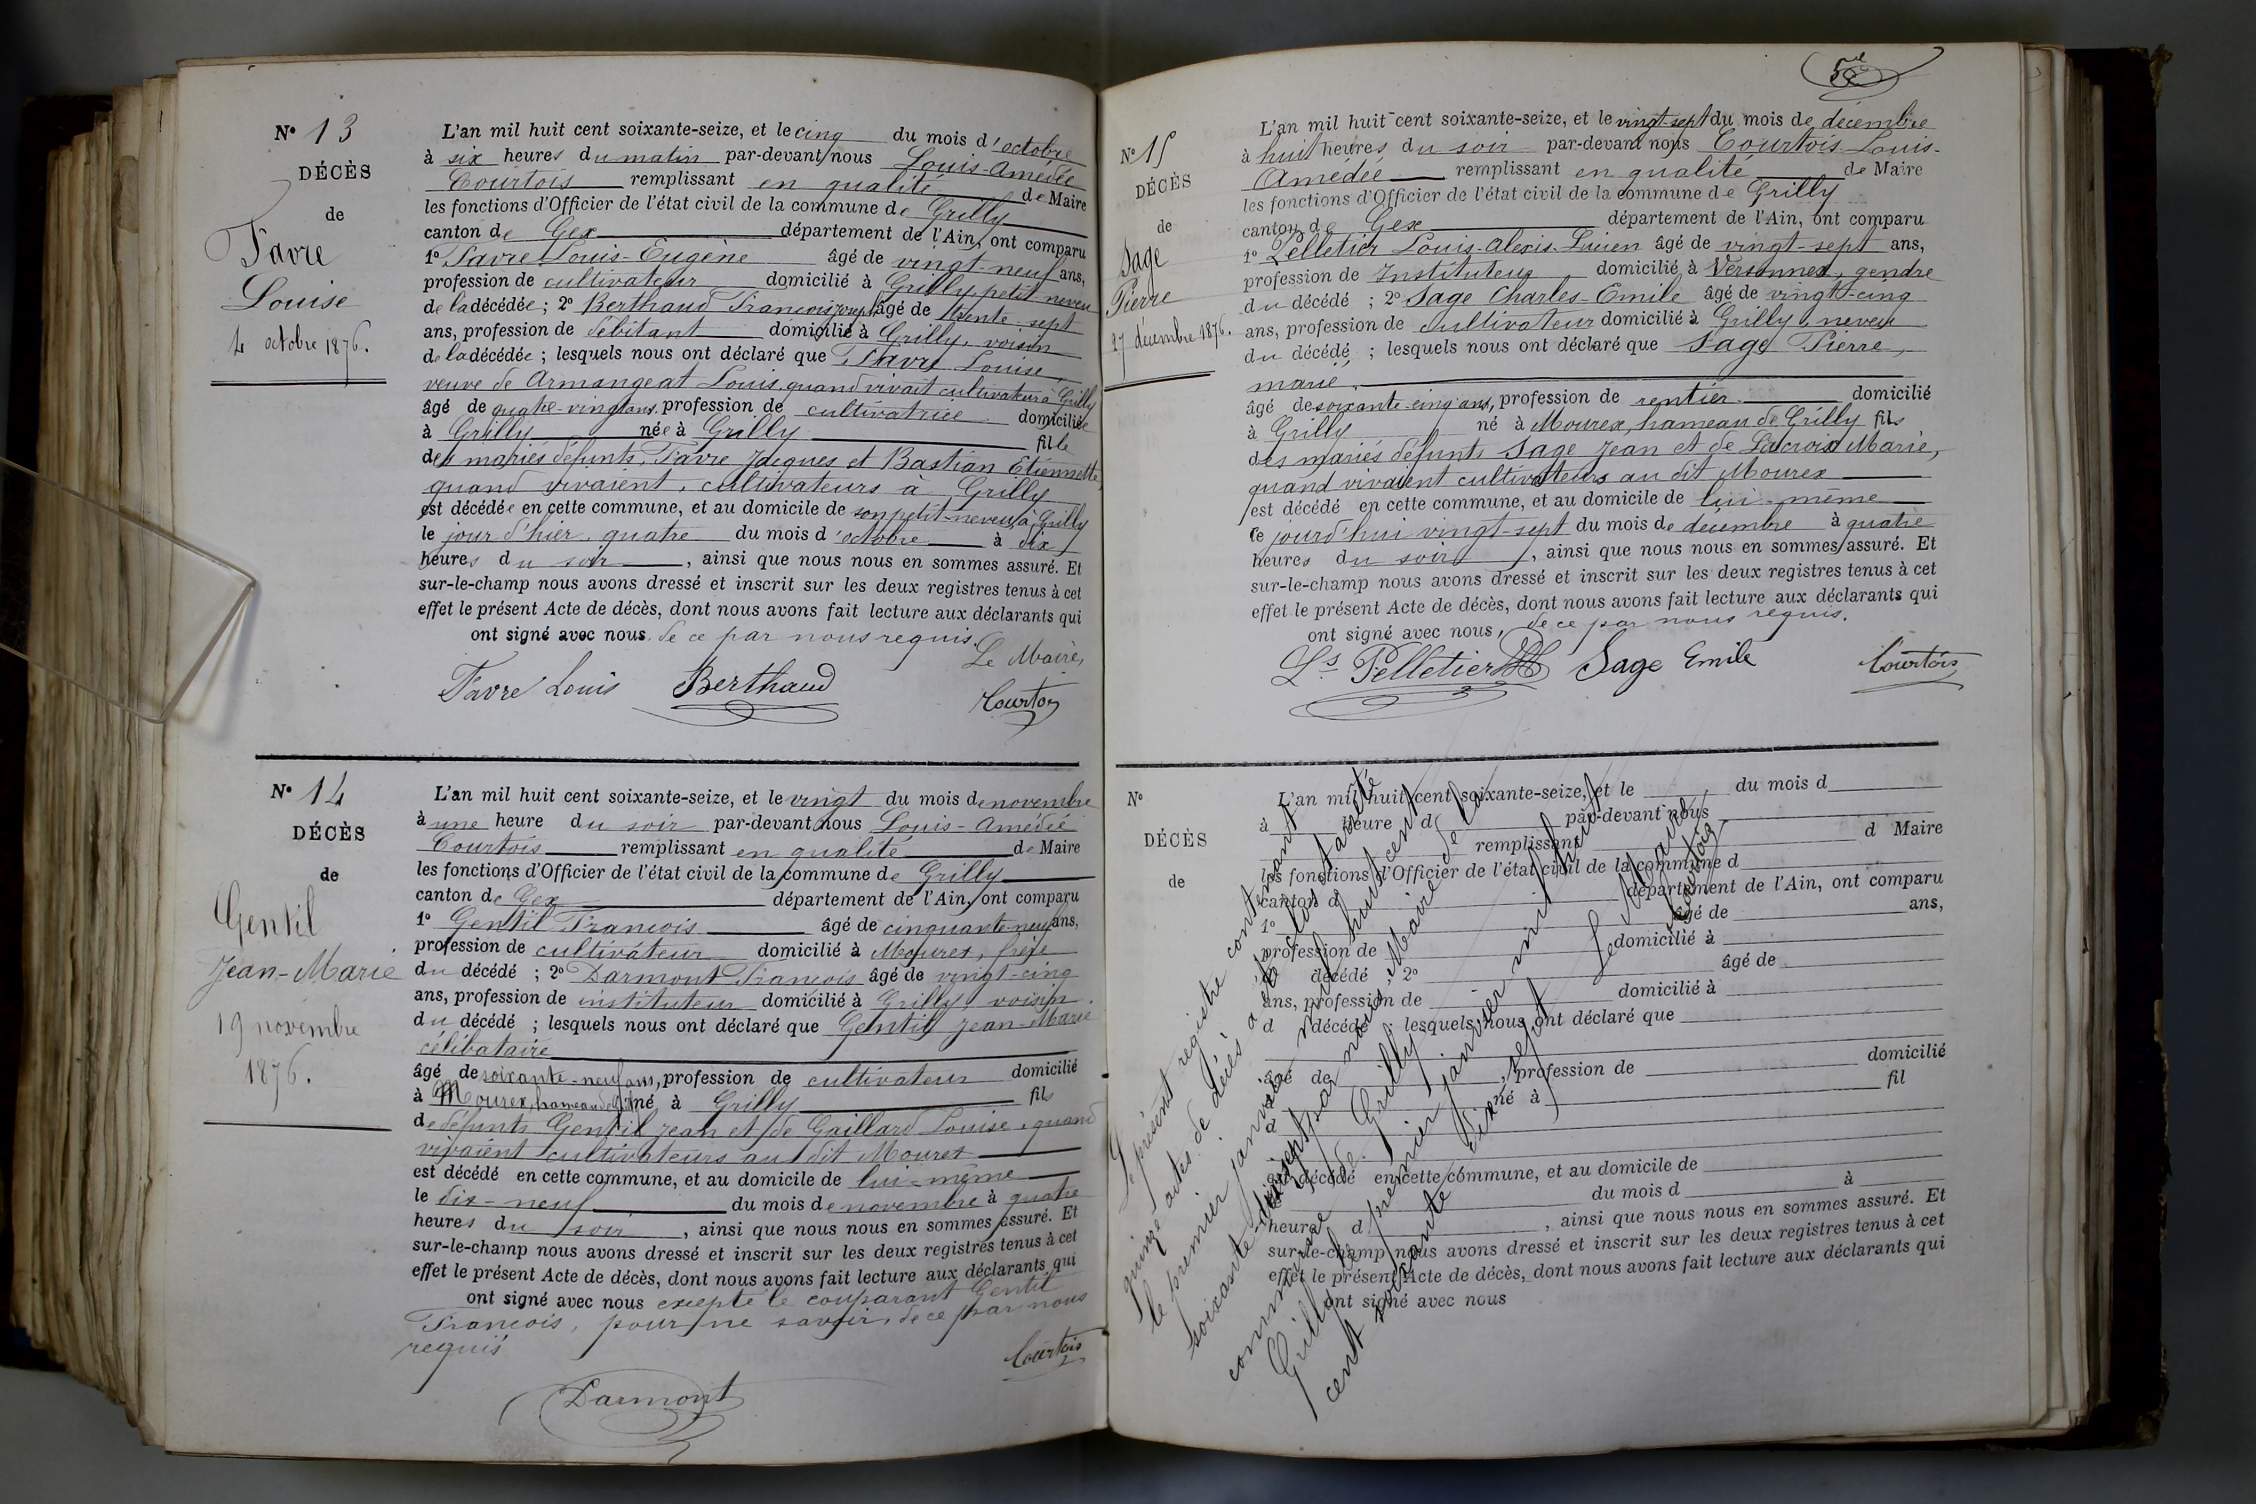 N° 13
DÉCÈS
de
Favre
Louise
4 octobre 1876.
L'an mil huit cent soixante-seize, et le cinq du mois d'octobre
à six heures du matin par-devant nous Louis-Amédée
Courtois remplissant en qualité de Maire
les fonctions d'Officier de l'état civil de la commune de Grilly
canton de Gex département de l'Ain, ont comparu
1° Favre Louis-Eugène âgé de vingt-neuf ans,
profession de cultivateur domicilié à Grilly, petit neveu
de la décédée ; 2° Berthaud François âgé de trente-sept
ans, profession de débitant domicilié à Grilly, voisin
de la décédée ; lesquels nous ont déclaré que Favre Louise,
veuve de Armangeat Louis, quand vivait cultivateur à Grilly
âgé de quatre-vingt ans, profession de cultivatrice domiciliée
à Grilly née à Grilly fille
des mariés défunts, Favre Jacques et Bastian Etiennette,
quand vivaient, cultivateurs à Grilly
est décédée en cette commune, et au domicile de son petit-neveu à Grilly
le jour d'hier, quatre du mois d'octobre à dix
heures du soir, ainsi que nous nous en sommes assuré. Et
sur-le-champ nous avons dressé et inscrit sur les deux registres tenus à cet
effet le présent Acte de décès, dont nous avons fait lecture aux déclarants qui
ont signé avec nous, de ce par nous requis.
Le Maire,
Favre Louis Berthaud Courtois
N° 14
DÉCÈS
de
Gentil
Jean-Marie
19 novembre
1876.
L'an mil huit cent soixante-seize, et le vingt du mois de novembre
à une heure du soir par-devant nous Louis-Amédée
Courtois remplissant en qualité de Maire
les fonctions d'Officier de l'état civil de la commune de Grilly
canton de Gex département de l'Ain, ont comparu
1° Gentil François âgé de cinquante-neuf ans,
profession de cultivateur domicilié à Mourex, frère
du décédé ; 2° Darmont François âgé de vingt-cinq
ans, profession de instituteur domicilié à Grilly, voisin
du décédé ; lesquels nous ont déclaré que Gentil Jean-Marie
célibataire
âgé de soixante-neuf ans, profession de cultivateur domicilié
à Mourex, hameau de né à Grilly fils
de défunts Gentil Jean et de Gaillard Louise, quand
vivaient cultivateurs au dit Mourex
est décédé en cette commune, et au domicile de lui-même
le dix-neuf du mois de novembre à quatre
heures du soir, ainsi que nous nous en sommes assuré. Et
sur-le-champ nous avons dressé et inscrit sur les deux registres tenus à cet
effet le présent Acte de décès, dont nous avons fait lecture aux déclarants qui
ont signé avec nous excepté le comparant Gentil
François, pour ne savoir, de ce par nous
requis
Courtois
Darmont
5e
N° 15
DÉCÈS
de
Sage
Pierre
27 décembre 1876.
L'an mil huit cent soixante-seize, et le vingt-sept du mois de décembre
à huit heures du soir par-devant nous Courtois Louis-
Amédée remplissant en qualité de Maire
les fonctions d'Officier de l'état civil de la commune de Grilly
canton de Gex département de l'Ain, ont comparu
1° Pelletier Louis-Alexis-Lucien âgé de vingt-sept ans,
profession de Instituteur domicilié à Versonnex, gendre
du décédé ; 2° Sage Charles-Emile âgé de vingt-cinq
ans, profession de cultivateur domicilié à Grilly, neveu
du décédé ; lesquels nous ont déclaré que Sage Pierre,
marié,
âgé de soixante-cinq ans, profession de rentier domicilié
à Grilly né à Mourex, hameau de Grilly fils
des mariés défunts Sage Jean et de Lacroix Marie,
quand vivaient cultivateurs au dit Mourex
est décédé en cette commune, et au domicile de lui-même
le jourd'hui vingt-sept du mois de décembre à quatre
heures du soir, ainsi que nous nous en sommes assuré. Et
sur-le-champ nous avons dressé et inscrit sur les deux registres tenus à cet
effet le présent Acte de décès, dont nous avons fait lecture aux déclarants qui
ont signé avec nous, de ce par nous requis.
Ls Pelletier Sage Emile Courtois
N°
DÉCÈS
de
L'an mil huit cent soixante-seize, et le du mois d
à heure d par-devant nous
remplissant d Maire
les fonctions d'Officier de l'état civil de la commune d
canton d département de l'Ain, ont comparu
1° âgé de ans,
profession de domicilié à
d décédé ; 2° âgé de
ans, profession de domicilié à
d décédé ; lesquels nous ont déclaré que
âgé de , profession de domicilié
à né à fil
d
est décédé en cette commune, et au domicile de
le du mois d à
heure d , ainsi que nous nous en sommes assuré. Et
sur-le-champ nous avons dressé et inscrit sur les deux registres tenus à cet
effet le présent Acte de décès, dont nous avons fait lecture aux déclarants qui
ont signé avec nous
Le présent registre contenant
quinze actes de décès a été clos et arrêté
le premier janvier mil huit cent
soixante-dix-sept par nous, Maire de la
commune de Grilly.
Grilly le premier janvier mil huit
cent soixante dix-sept
Le Maire
Courtois